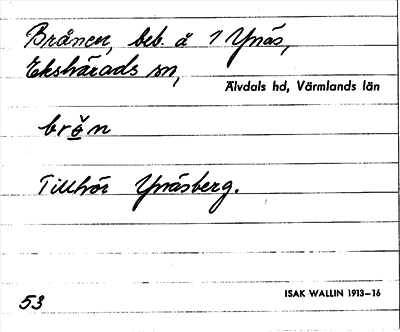 Brånen, beb. å 1 Ynäs,
Ekshärads sn,
Älvdals hd, Värmlands län
brǻ̱n
Tillhör Ynäsberg.
ISAK WALLIN 1913–16
53